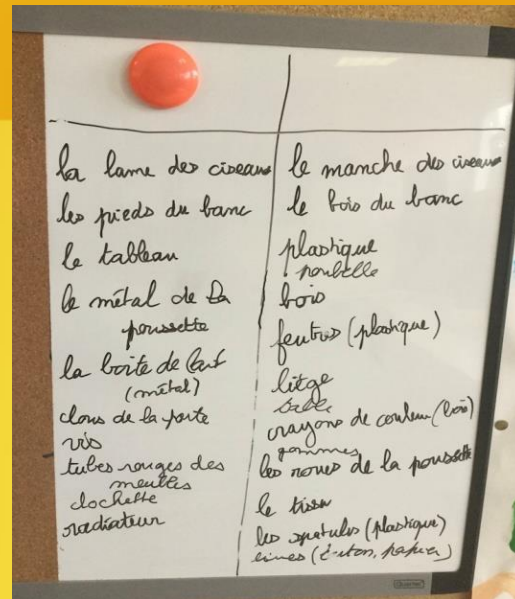 la lame des ciseaux
les pieds du banc
le tableau
le métal de la
poussette
la boite de
(métal)
clous de la porte
vis
tubes rouges des
meubles
clochette
radiateur
le manche des ciseaux
le bois du banc
plastique
poubelle
bois
feutres (plastique)
liège
balle
crayons de couleur (bois)
gommes
les roues de la poussette
le tissu
les spatules (plastique)
livres (carton, papier)